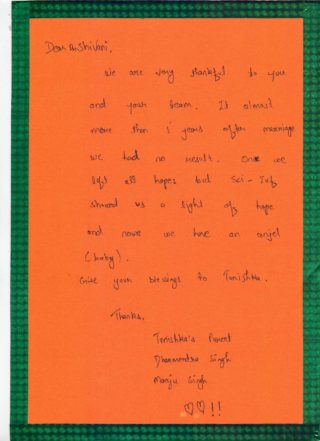 Dear Dr. Shivani,
We are very thankful to you
and your team. It almost
more than 5 years after marriage
we had no result. Once we
left all hopes but Sci-Ivf
showed us a light of hope
and now we have an angel
(baby).
Give your blessings to Tanishka.
Thanks,
Tanishka's Parent
Dharmendra Singh
Manju Singh
♡♡!!